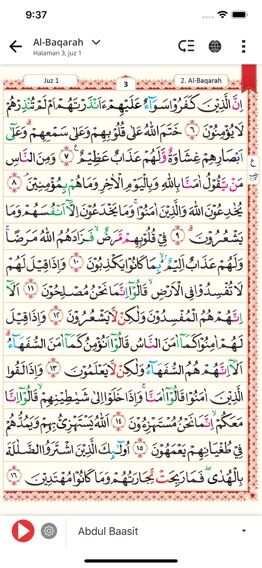 9:37
Al-Baqarah
Halaman 3, juz 1
Juz 1
3
2. Al-Baqarah
اِنَّ الَّذِيْنَ كَفَرُوْا سَوَاۤءٌ عَلَيْهِمْ ءَاَنْذَرْتَهُمْ اَمْ لَمْ تُنْذِرْهُمْ
لَا يُؤْمِنُوْنَ ۞٦ خَتَمَ اللّٰهُ عَلٰى قُلُوْبِهِمْ وَعَلٰى سَمْعِهِمْ ۗ وَعَلٰٓى
اَبْصَارِهِمْ غِشَاوَةٌ وَّلَهُمْ عَذَابٌ عَظِيْمٌ ࣖ ٧ وَمِنَ النَّاسِ
مَنْ يَّقُوْلُ اٰمَنَّا بِاللّٰهِ وَبِالْيَوْمِ الْاٰخِرِ وَمَا هُمْ بِمُؤْمِنِيْنَۘ ٨
يُخٰدِعُوْنَ اللّٰهَ وَالَّذِيْنَ اٰمَنُوْا ۚ وَمَا يَخْدَعُوْنَ اِلَّآ اَنْفُسَهُمْ وَمَا
يَشْعُرُوْنَۗ ٩ فِيْ قُلُوْبِهِمْ مَّرَضٌۙ فَزَادَهُمُ اللّٰهُ مَرَضًاۚ
وَلَهُمْ عَذَابٌ اَلِيْمٌ ۢ ەۙ بِمَا كَانُوْا يَكْذِبُوْنَ ١٠ وَاِذَا قِيْلَ لَهُمْ
لَا تُفْسِدُوْا فِى الْاَرْضِۙ قَالُوْٓا اِنَّمَا نَحْنُ مُصْلِحُوْنَ ١١ اَلَآ
اِنَّهُمْ هُمُ الْمُفْسِدُوْنَ وَلٰكِنْ لَّا يَشْعُرُوْنَ ١٢ وَاِذَا قِيْلَ
لَهُمْ اٰمِنُوْا كَمَآ اٰمَنَ النَّاسُ قَالُوْٓا اَنُؤْمِنُ كَمَآ اٰمَنَ السُّفَهَاۤءُ ۗ
اَلَآ اِنَّهُمْ هُمُ السُّفَهَاۤءُ وَلٰكِنْ لَّا يَعْلَمُوْنَ ١٣ وَاِذَا لَقُوا
الَّذِيْنَ اٰمَنُوْا قَالُوْٓا اٰمَنَّا ۚ وَاِذَا خَلَوْا اِلٰى شَيٰطِيْنِهِمْ ۙ قَالُوْٓا اِنَّا
مَعَكُمْ ۙ اِنَّمَا نَحْنُ مُسْتَهْزِءُوْنَ ١٤ اَللّٰهُ يَسْتَهْزِئُ بِهِمْ وَيَمُدُّهُمْ
فِيْ طُغْيَانِهِمْ يَعْمَهُوْنَ ١٥ اُولٰۤىِٕكَ الَّذِيْنَ اشْتَرَوُا الضَّلٰلَةَ
بِالْهُدٰىۖ فَمَا رَبِحَتْ تِّجَارَتُهُمْ وَمَا كَانُوْا مُهْتَدِيْنَ ١٦
Abdul Baasit